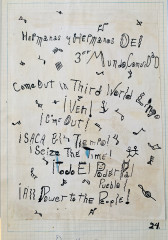 Hermanas y Hermanos Del
3er Mundo
Come Out in Third World
¡Ven!
I'm Out!
¡SACA El Tiempo!
¡Seize The Time!
¡Todo El Poder Pal
Pueblo!
¡All Power to the People!
24